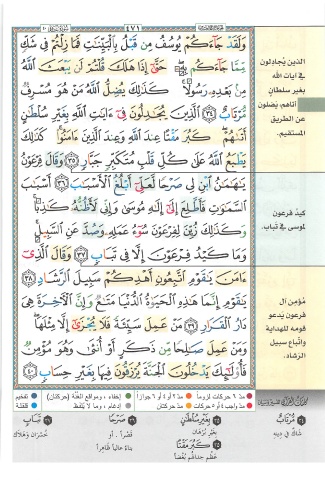 ٤٧١
وَلَقَدْ جَآءَكُمْ يُوسُفُ مِن قَبْلُ بِٱلْبَيِّنَٰتِ فَمَا زِلْتُمْ فِى شَكٍّ
مِّمَّا جَآءَكُم بِهِۦ حَتَّىٰٓ إِذَا هَلَكَ قُلْتُمْ لَن يَبْعَثَ ٱللَّهُ
مِنۢ بَعْدِهِۦ رَسُولًا كَذَٰلِكَ يُضِلُّ ٱللَّهُ مَنْ هُوَ مُسْرِفٌ
مُّرْتَابٌ ٣٤ ٱلَّذِينَ يُجَٰدِلُونَ فِىٓ ءَايَٰتِ ٱللَّهِ بِغَيْرِ سُلْطَٰنٍ
أَتَىٰهُمْ كَبُرَ مَقْتًا عِندَ ٱللَّهِ وَعِندَ ٱلَّذِينَ ءَامَنُوا۟ كَذَٰلِكَ
يَطْبَعُ ٱللَّهُ عَلَىٰ كُلِّ قَلْبِ مُتَكَبِّرٍ جَبَّارٍ ٣٥ وَقَالَ فِرْعَوْنُ
يَٰهَٰمَٰنُ ٱبْنِ لِى صَرْحًا لَّعَلِّىٓ أَبْلُغُ ٱلْأَسْبَٰبَ ٣٦ أَسْبَٰبَ
ٱلسَّمَٰوَٰتِ فَأَطَّلِعَ إِلَىٰٓ إِلَٰهِ مُوسَىٰ وَإِنِّى لَأَظُنُّهُۥ كَٰذِبًا
وَكَذَٰلِكَ زُيِّنَ لِفِرْعَوْنَ سُوٓءُ عَمَلِهِۦ وَصُدَّ عَنِ ٱلسَّبِيلِ
وَمَا كَيْدُ فِرْعَوْنَ إِلَّا فِى تَبَابٍ ٣٧ وَقَالَ ٱلَّذِىٓ
ءَامَنَ يَٰقَوْمِ ٱتَّبِعُونِ أَهْدِكُمْ سَبِيلَ ٱلرَّشَادِ ٣٨
يَٰقَوْمِ إِنَّمَا هَٰذِهِ ٱلْحَيَوٰةُ ٱلدُّنْيَا مَتَٰعٌ وَإِنَّ ٱلْءَاخِرَةَ هِىَ
دَارُ ٱلْقَرَارِ ٣٩ مَنْ عَمِلَ سَيِّئَةً فَلَا يُجْزَىٰٓ إِلَّا مِثْلَهَا
وَمَنْ عَمِلَ صَٰلِحًا مِّن ذَكَرٍ أَوْ أُنثَىٰ وَهُوَ مُؤْمِنٌ
فَأُو۟لَٰٓئِكَ يَدْخُلُونَ ٱلْجَنَّةَ يُرْزَقُونَ فِيهَا بِغَيْرِ حِسَابٍ ٤٠
الذين يُجادلون
في آيات الله
بغير سلطانٍ
أتاهم، يَضلون
عن الطريق
المستقيم.
كيدُ فرعون
لموسى في تباب.
مُؤمِن آل
فرعون يَدعو
قومه للهداية
واتّباع سبيل
الرشاد.
مدّ ٦ حركات لزوماً مدّ ٢ أو ٤ أو ٦ جوازاً إخفاء، ومواقع الغنّة (حركتان) تفخيم
مدّ واجب ٤ أو ٥ حركات مدّ حركتان إدغام، وما لا يُلفظ قلقلة
مُرْتَابٌ
شاكٌّ في دينه
بِغَيْرِ سُلْطَانٍ
بغير برهان
كَبُرَ مَقْتًا
عظُم جدالُهم بُغضاً
صَرْحًا
قصراً.. أو
بناءً عالياً ظاهراً
تَبَابٍ
خُسران وهلاك